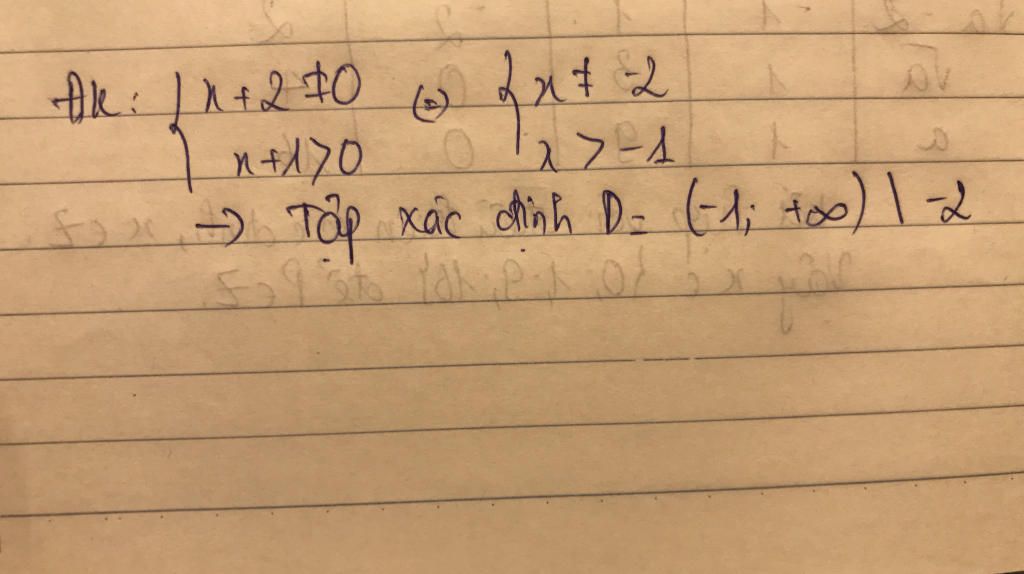 ĐK: { x + 2 ≠ 0 (=) { x ≠ -2
x + 1 > 0 x > -1
→ Tập xác định D = (-1; +∞) \ -2